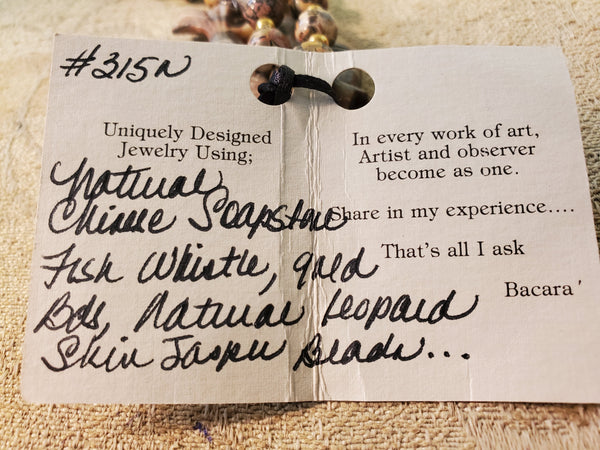 #315N
Uniquely Designed
Jewelry Using;
Natural,
Chinese Soapstone
Fish Whistle, gold
Bds, Natural Leopard
Skin Jasper Beads...
In every work of art,
Artist and observer
become as one.
Share in my experience....
That's all I ask
Bacara'